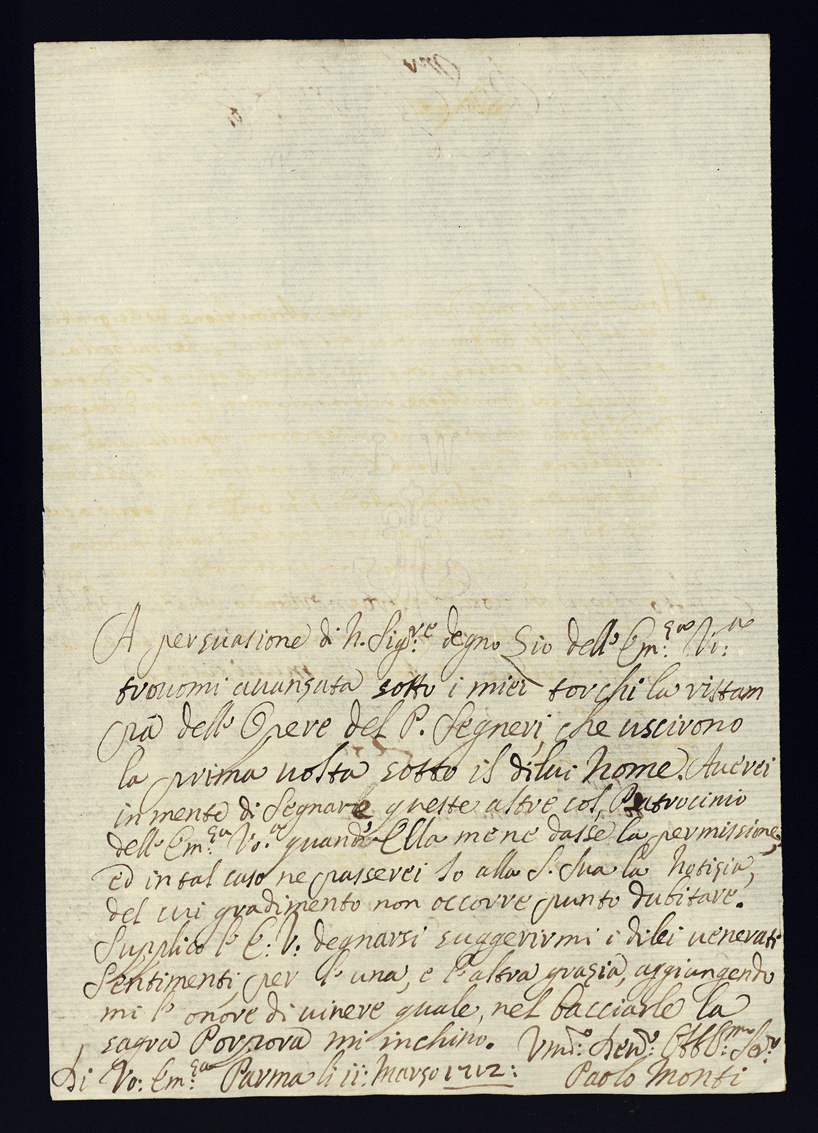 A persuasione di N. Sig.re degno Zio dell' Em.za V.a
trouomi auansata sotto i miei torchi la ristam
pa dell' Opere del P. Segneri, che uscirono
la prima uolta sotto il dilui Nome. Auerei
in mente di segnare queste altre col Patrocinio
dell' Em.za Vo.a quand' Ella me ne dasse la permissione,
ed in tal caso ne passerei Io alla S. Sua la Notizia,
del cui gradimento non occorre punto dubitare.
Supplico l' E. V. degnarsi suggerirmi i dilei uenerati
Sentimenti per l' una, e l' altra grazia, aggiungendo
mi l' onore di uiuere quale, nel bacciarle la
sagra Porpora mi inchino.
Di Vo: Em.za Parma li 11: Marzo 1712:
Um.o Deu.o Obb.mo Ser.
Paolo Monti